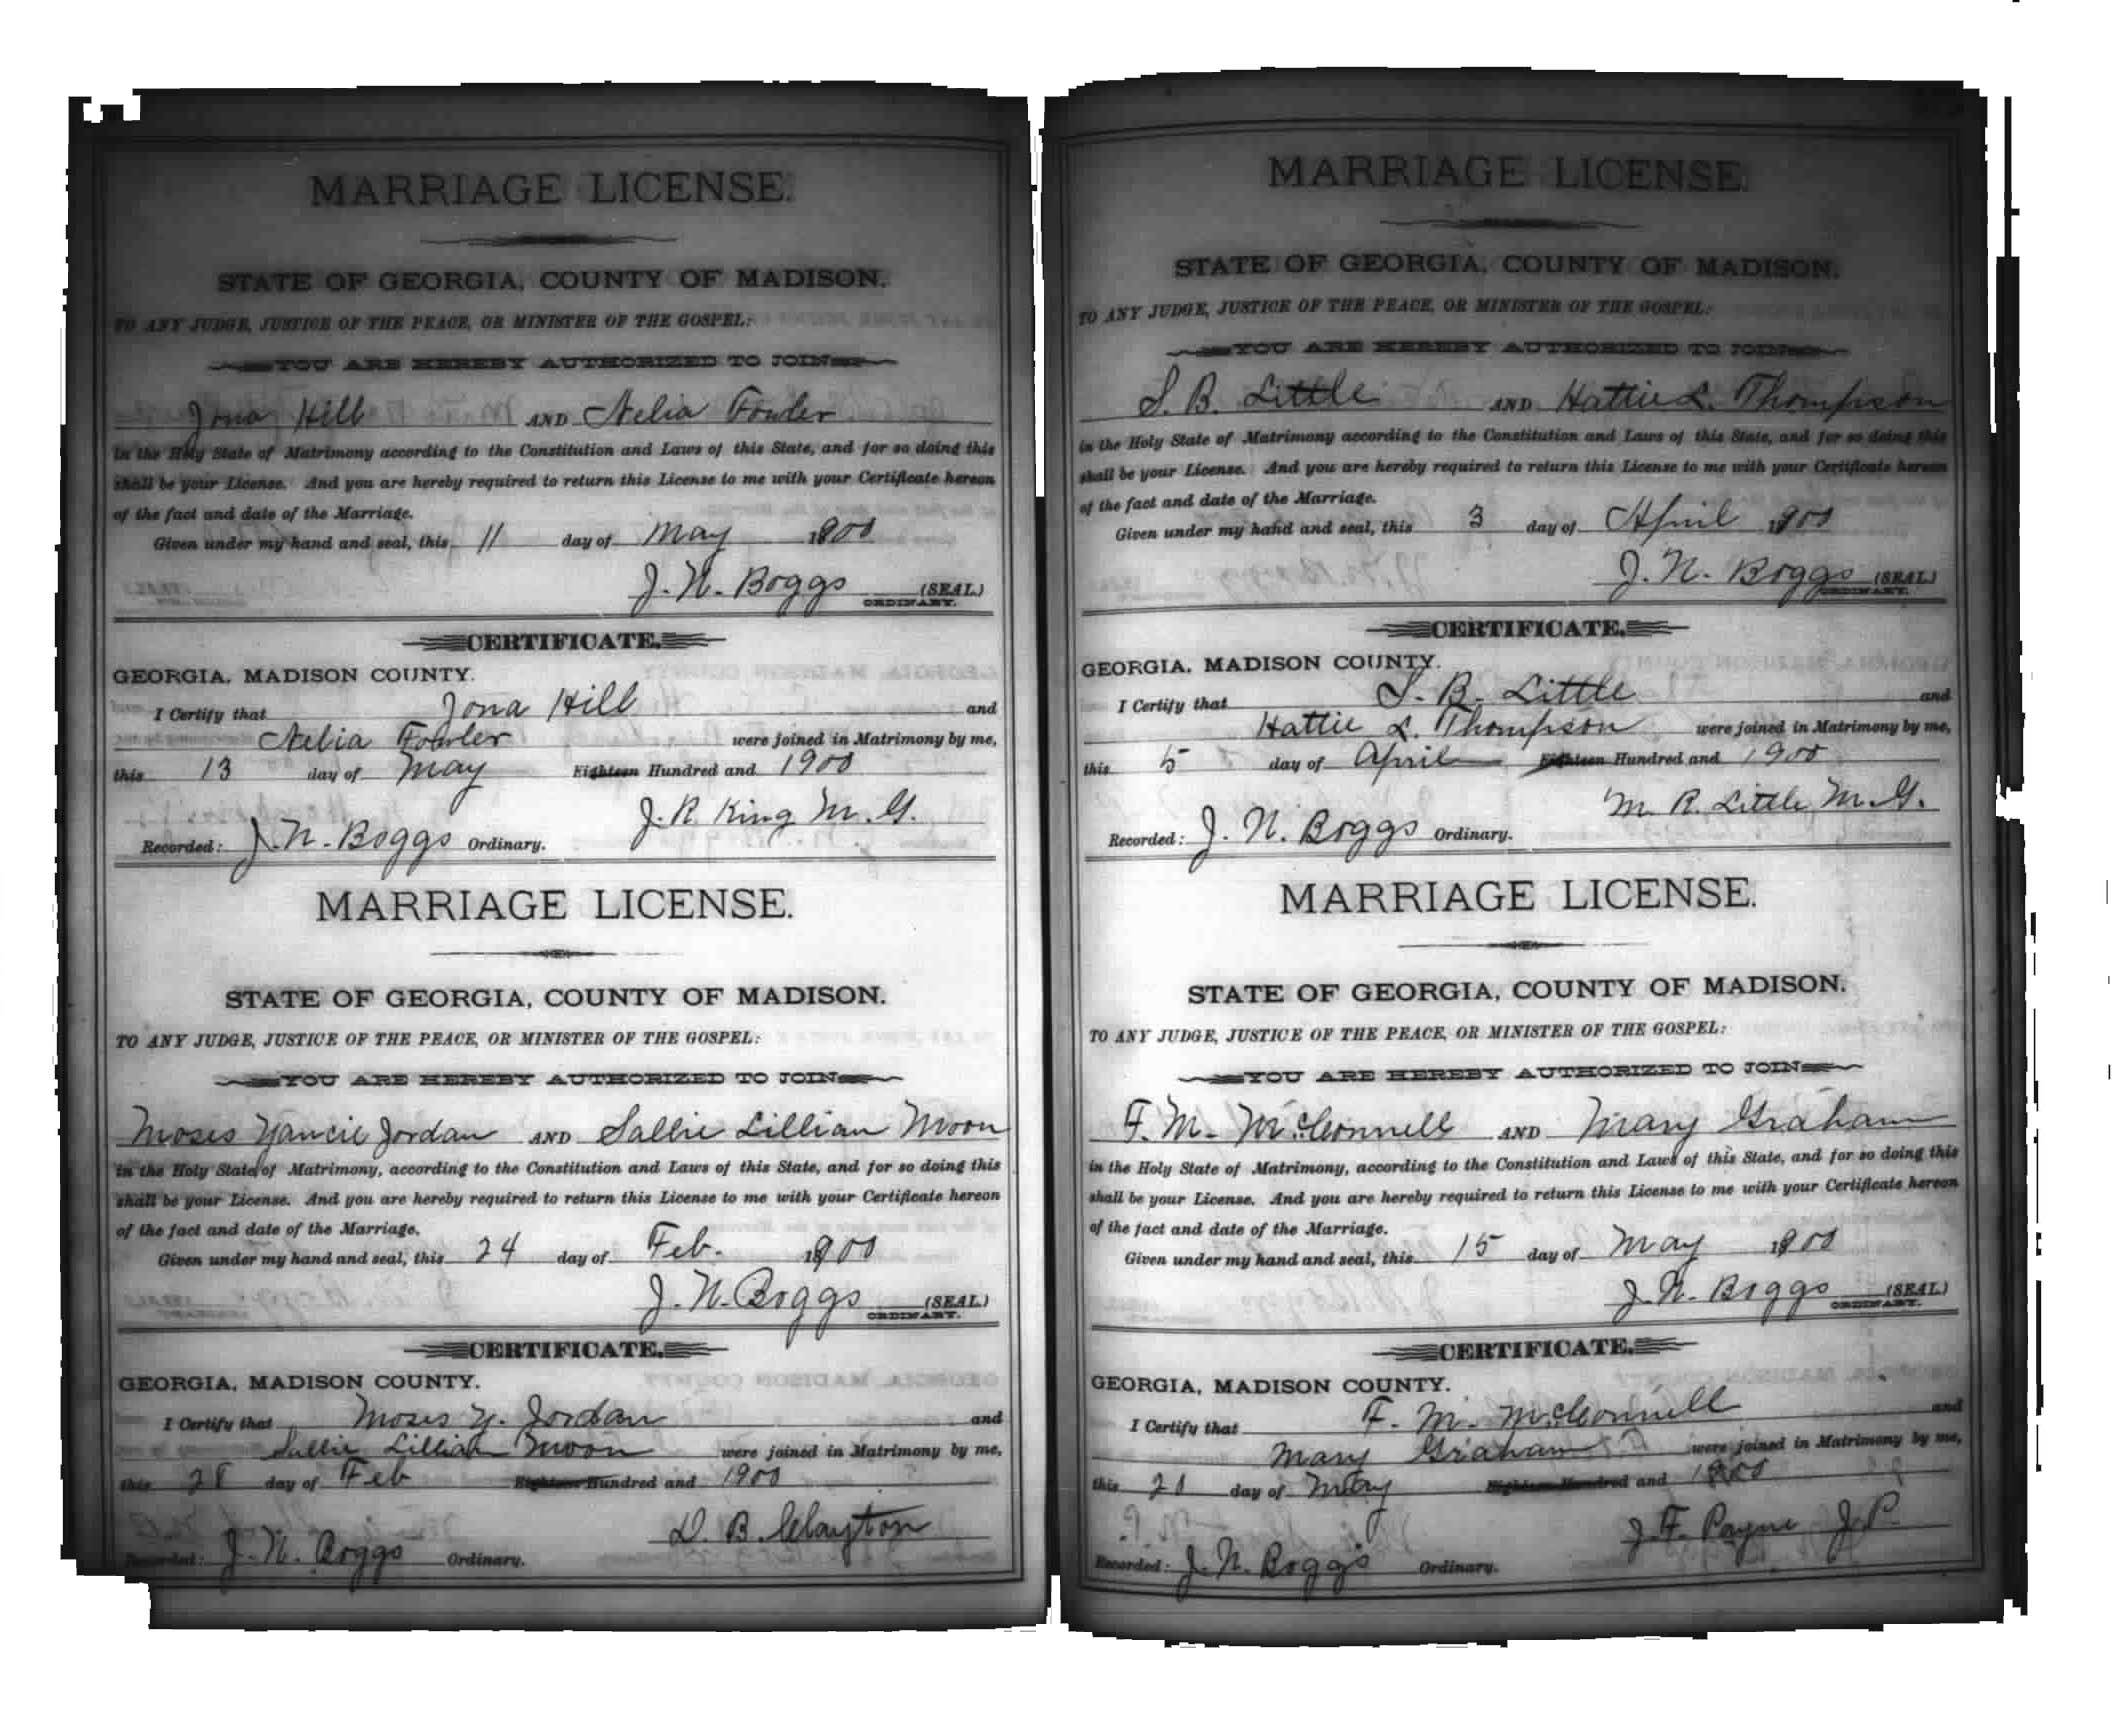 MARRIAGE LICENSE.
STATE OF GEORGIA, COUNTY OF MADISON.
TO ANY JUDGE, JUSTICE OF THE PEACE, OR MINISTER OF THE GOSPEL:
YOU ARE HEREBY AUTHORIZED TO JOIN
Jona Hill AND Nelia Fowler
in the Holy State of Matrimony according to the Constitution and Laws of this State, and for so doing this
shall be your License. And you are hereby required to return this License to me with your Certificate hereon
of the fact and date of the Marriage.
Given under my hand and seal, this 11 day of May 1900
J. N. Boggs (SEAL)
ORDINARY.
CERTIFICATE.
GEORGIA, MADISON COUNTY.
I Certify that Jona Hill and
Nelia Fowler were joined in Matrimony by me,
this 13 day of May Eighteen Hundred and 1900
J. R. King M. G.
Recorded: J. N. Boggs Ordinary.
MARRIAGE LICENSE.
STATE OF GEORGIA, COUNTY OF MADISON.
TO ANY JUDGE, JUSTICE OF THE PEACE, OR MINISTER OF THE GOSPEL:
YOU ARE HEREBY AUTHORIZED TO JOIN
Moses Yancie Jordan AND Sallie Lillian Moon
in the Holy State of Matrimony, according to the Constitution and Laws of this State, and for so doing this
shall be your License. And you are hereby required to return this License to me with your Certificate hereon
of the fact and date of the Marriage.
Given under my hand and seal, this 24 day of Feb. 1900
J. N. Boggs (SEAL)
ORDINARY.
CERTIFICATE.
GEORGIA, MADISON COUNTY.
I Certify that Moses Y. Jordan and
Sallie Lillian Moon were joined in Matrimony by me,
this 28 day of Feb Eighteen Hundred and 1900
D. B. Clayton
Recorded: J. N. Boggs Ordinary.
MARRIAGE LICENSE.
STATE OF GEORGIA, COUNTY OF MADISON.
TO ANY JUDGE, JUSTICE OF THE PEACE, OR MINISTER OF THE GOSPEL:
YOU ARE HEREBY AUTHORIZED TO JOIN
S. B. Little AND Hattie L. Thompson
in the Holy State of Matrimony according to the Constitution and Laws of this State, and for so doing this
shall be your License. And you are hereby required to return this License to me with your Certificate hereon
of the fact and date of the Marriage.
Given under my hand and seal, this 3 day of April 1900
J. N. Boggs (SEAL)
ORDINARY.
CERTIFICATE.
GEORGIA, MADISON COUNTY.
I Certify that S. B. Little and
Hattie L. Thompson were joined in Matrimony by me,
this 5 day of April Eighteen Hundred and 1900
M. R. Little, M. G.
Recorded: J. N. Boggs Ordinary.
MARRIAGE LICENSE.
STATE OF GEORGIA, COUNTY OF MADISON.
TO ANY JUDGE, JUSTICE OF THE PEACE, OR MINISTER OF THE GOSPEL:
YOU ARE HEREBY AUTHORIZED TO JOIN
F. M. McConnell AND Mary Graham
in the Holy State of Matrimony, according to the Constitution and Laws of this State, and for so doing this
shall be your License. And you are hereby required to return this License to me with your Certificate hereon
of the fact and date of the Marriage.
Given under my hand and seal, this 15 day of May 1900
J. N. Boggs (SEAL)
ORDINARY.
CERTIFICATE.
GEORGIA, MADISON COUNTY.
I Certify that F. M. McConnell and
Mary Graham were joined in Matrimony by me,
this 20 day of May Eighteen Hundred and 1900
J. F. Payne J. P.
Recorded: J. N. Boggs Ordinary.